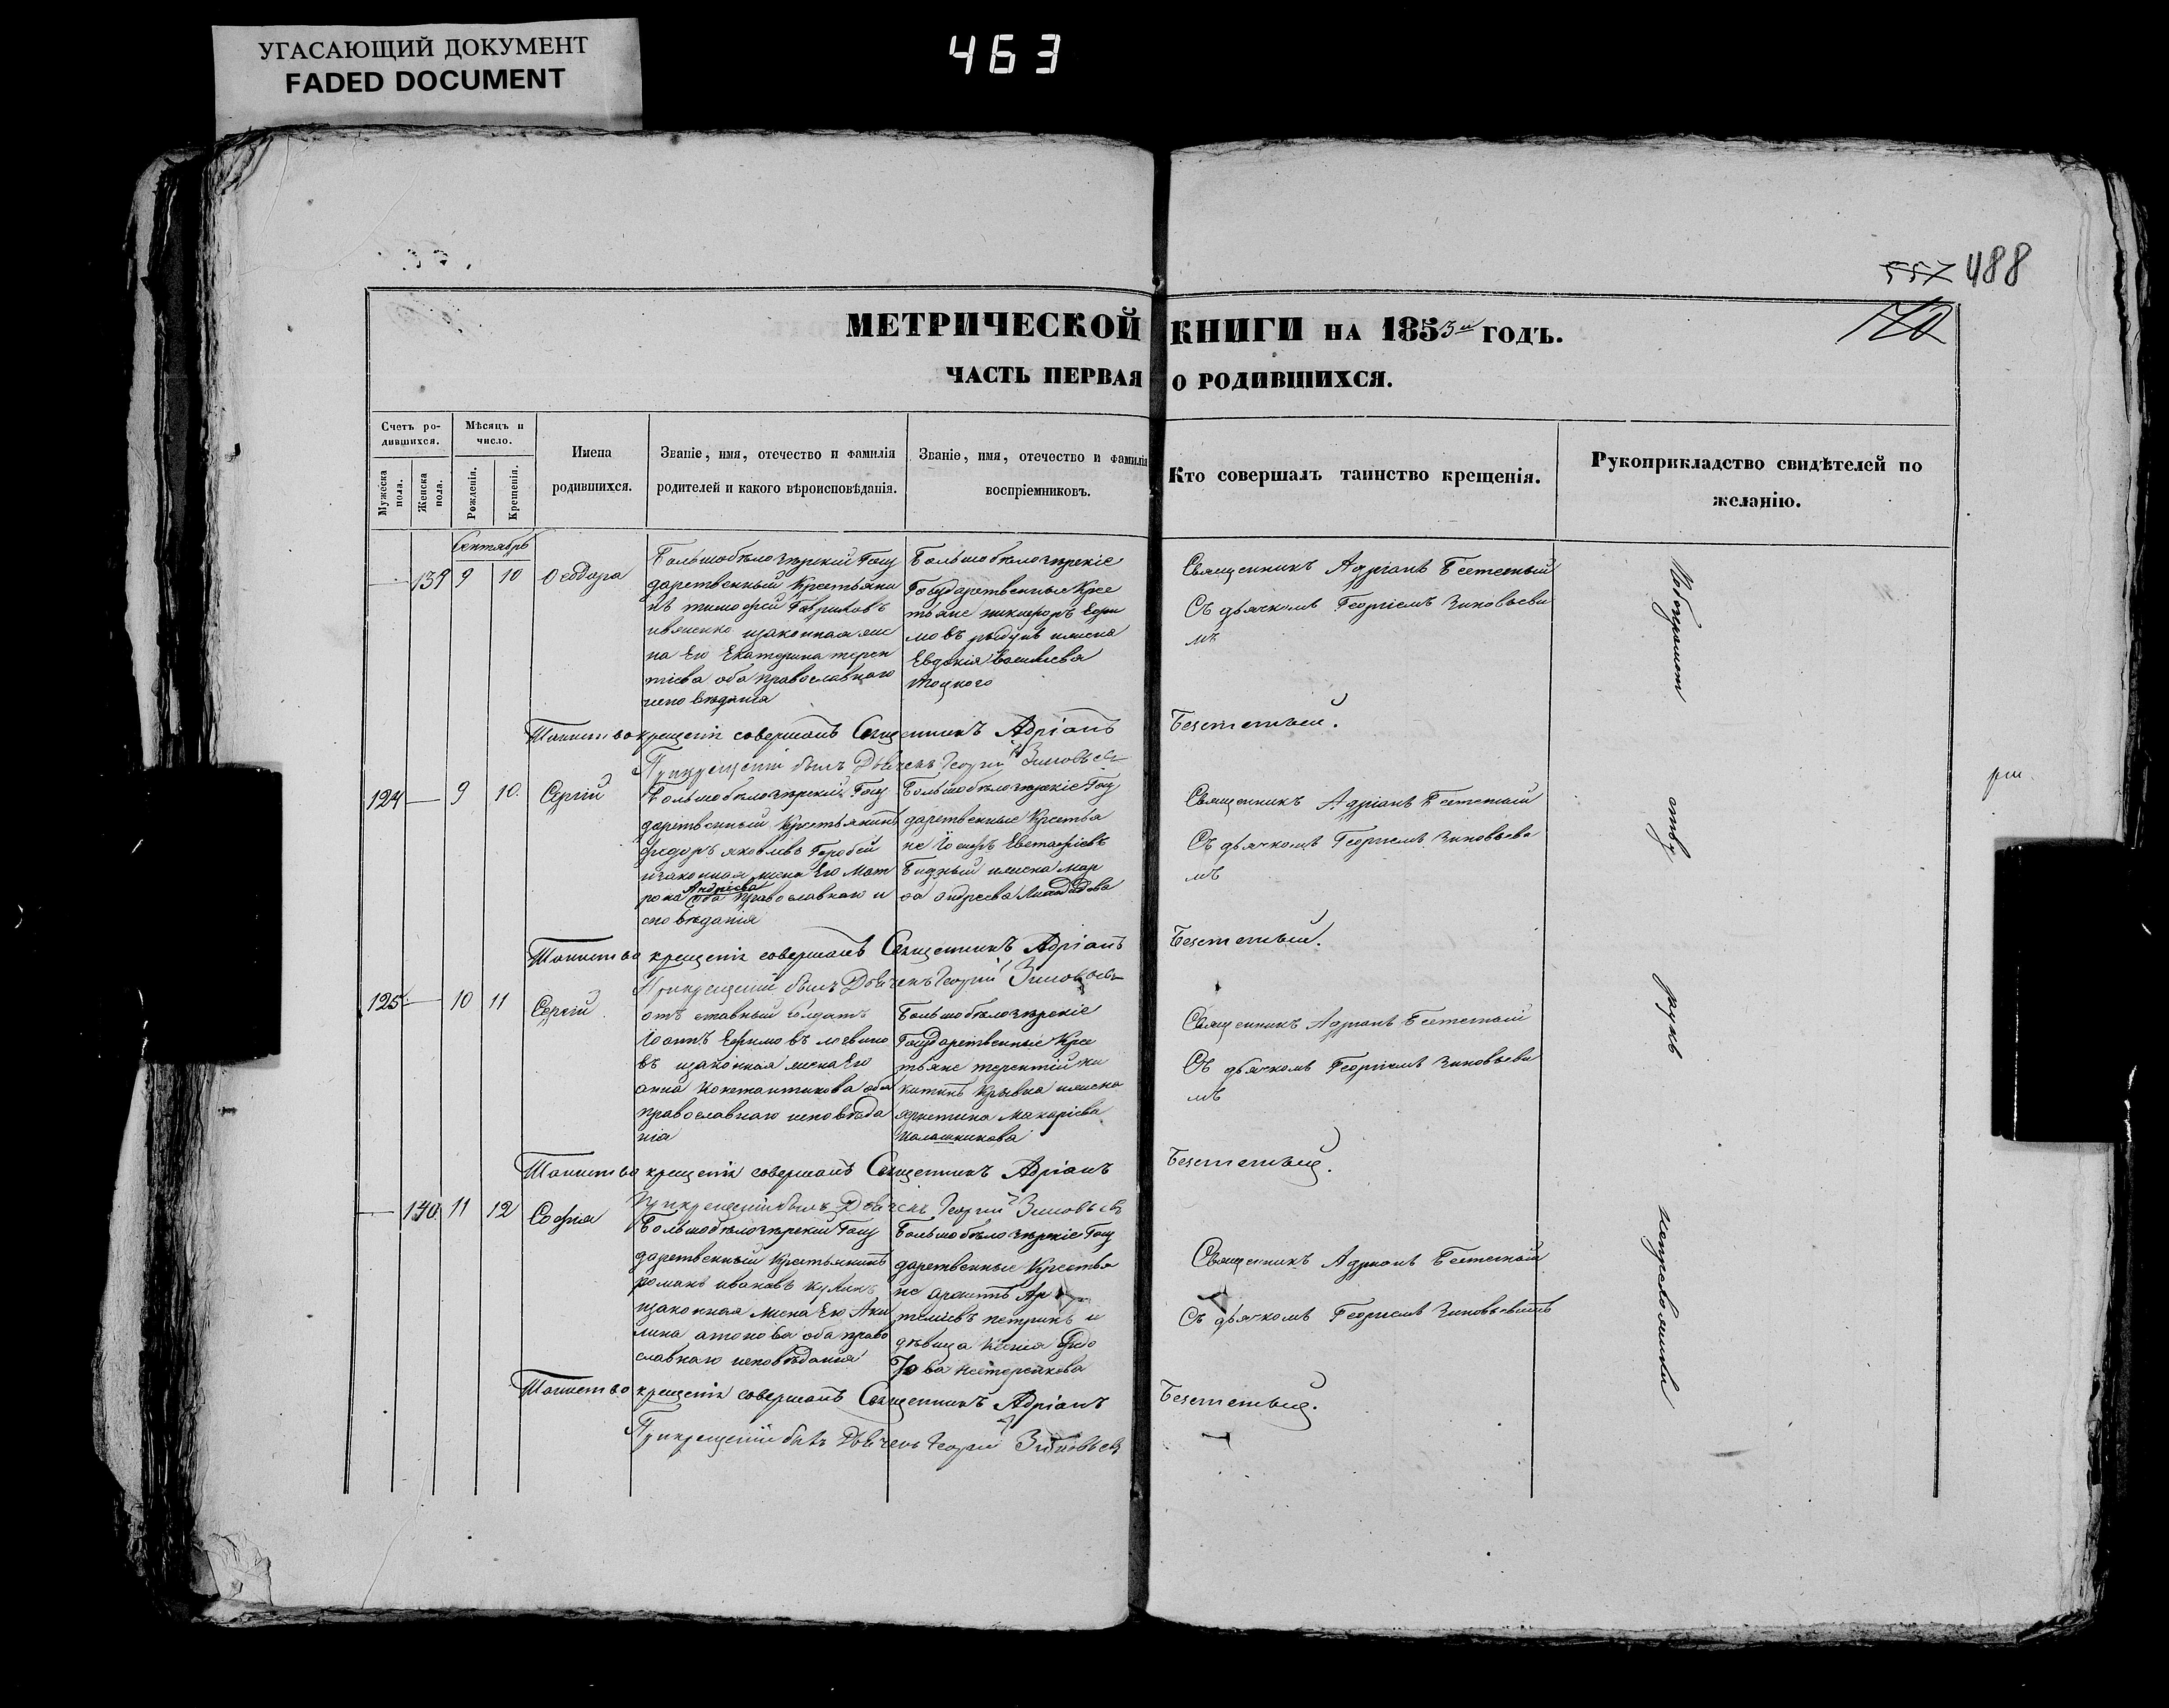 УГАСАЮЩИЙ ДОКУМЕНТ
FADED DOCUMENT
463
557 488
170
МЕТРИЧЕСКОЙ КНИГИ НА 1853й ГОДЪ.
ЧАСТЬ ПЕРВАЯ О РОДИВШИХСЯ.
Счетъ ро-
дившихся.
Мужеска
пола.
Женска
пола.
Мѣсяцъ и
число.
Рожденія.
Крещенія.
Имена
родившихся.
Званіе, имя, отечество и фамилія
родителей и какого вѣроисповѣданія.
Званіе, имя, отечество и фамилія
воспріемниковъ.
Кто совершалъ таинство крещенія.
Рукоприкладство свидѣтелей по
желанію.
Сентябрь
139 9 10 Ѳеодора
Большобѣлозѣрскій Госу
дарственный Крестьяни
нъ тимофей Гавриловъ
ивченко изаконная же
на Его Екатерина терен
тіева оба православнаго
исповѣданія
Большобѣлозѣрскіе
Государственные Крес
тьяне никифоръ Ефи
мовъ и жена
Евдокія Василіева
Священникъ Адріанъ
Съ дьячкомъ Георгіемъ Зиновьевы
мъ
Таинство крещенія совершалъ Священникъ Адріанъ
При крещеніи былъ Дьячекъ Георгій Зиновьевъ
124 9 10 Сергій
Большобѣлозѣрскій Госу
дарственный Крестьянинъ
федоръ яковлевъ Горобей
изаконная жена Его Мат
рона Андріева оба Православнаго и
сповѣданія
Большобѣлозѣрскіе Госу
дарственные Крестья
не Іосифъ Евстафіевъ
Бидный и жена Мар
фа Андреева
Священникъ Адріанъ
Съ дьячкомъ Георгіемъ Зиновьевы
мъ
Таинство крещенія совершалъ Священникъ Адріанъ
При крещеніи былъ Дьячекъ Георгій Зиновьевъ
125 10 11 Сергій
отставный Солдатъ
Іоаннъ Ефимовъ логвино
въ изаконная жена Его
анна Константинова оба
православнаго исповѣда
нія
Большобѣлозѣрскіе
Государственные Крес
тьяне терентій ни
китинъ и жена
христина Макаріева
Калашникова
Священникъ Адріанъ
Съ дьячкомъ Георгіемъ Зиновьевы
мъ
Таинство крещенія совершалъ Священникъ Адріанъ
При крещеніи былъ Дьячекъ Георгій Зиновьевъ
140 11 12 Софія
Большобѣлозѣрскій Госу
дарственный Крестьянинъ
романъ ивановъ
изаконная жена Его Аки
лина антонова оба право
славнаго исповѣданія
Большобѣлозѣрскіе Госу
дарственные Крестья
не Ар
теміевъ петрикъ и
дѣвица Ксенія Федо
това Нестеренкова
Священникъ Адріанъ
Съ дьячкомъ Георгіемъ Зиновьевымъ
Таинство крещенія совершалъ Священникъ Адріанъ
При крещеніи былъ Дьячекъ Георгій Зиновьевъ
рукъ
неприложили